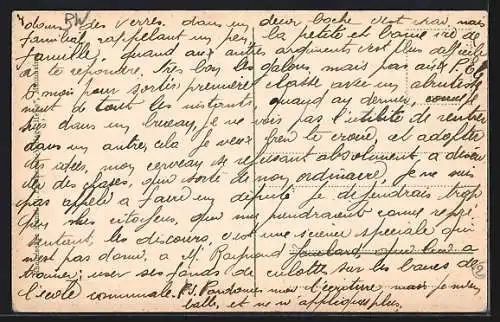 donner des verres. dans un décor boche c'est vrai, mais
familial, rappelant un peu la petite et bonne vie de
famille, quand aux autres arguments c'est plus difficile
de te répondre. Très bon les galons mais pas aux P.
6 mois pour sortir première classe avec un abrutisse
ment de tout les instants quand au dernier,
dans un bureau, je ne vois pas l'utilité de rentrer
dans un autre, cela je veux bien te croire, et adopter
tes idées, mon cerveau se refusant absolument, a discu
ter des choses, qui sorte de mon ordinaire, je ne suis
pas appelé a faire un député je defendrais trop
peu mes citoyens, qui me prendraient comme repré
sentant, les discours, c'est une science speciale qui
n'est pas donné, a Mr Raymond
user ses fonds de culotte sur les bancs de
l'école communale. P.S. Pardonne moi l'écriture mais je
et ne m'applique plus.